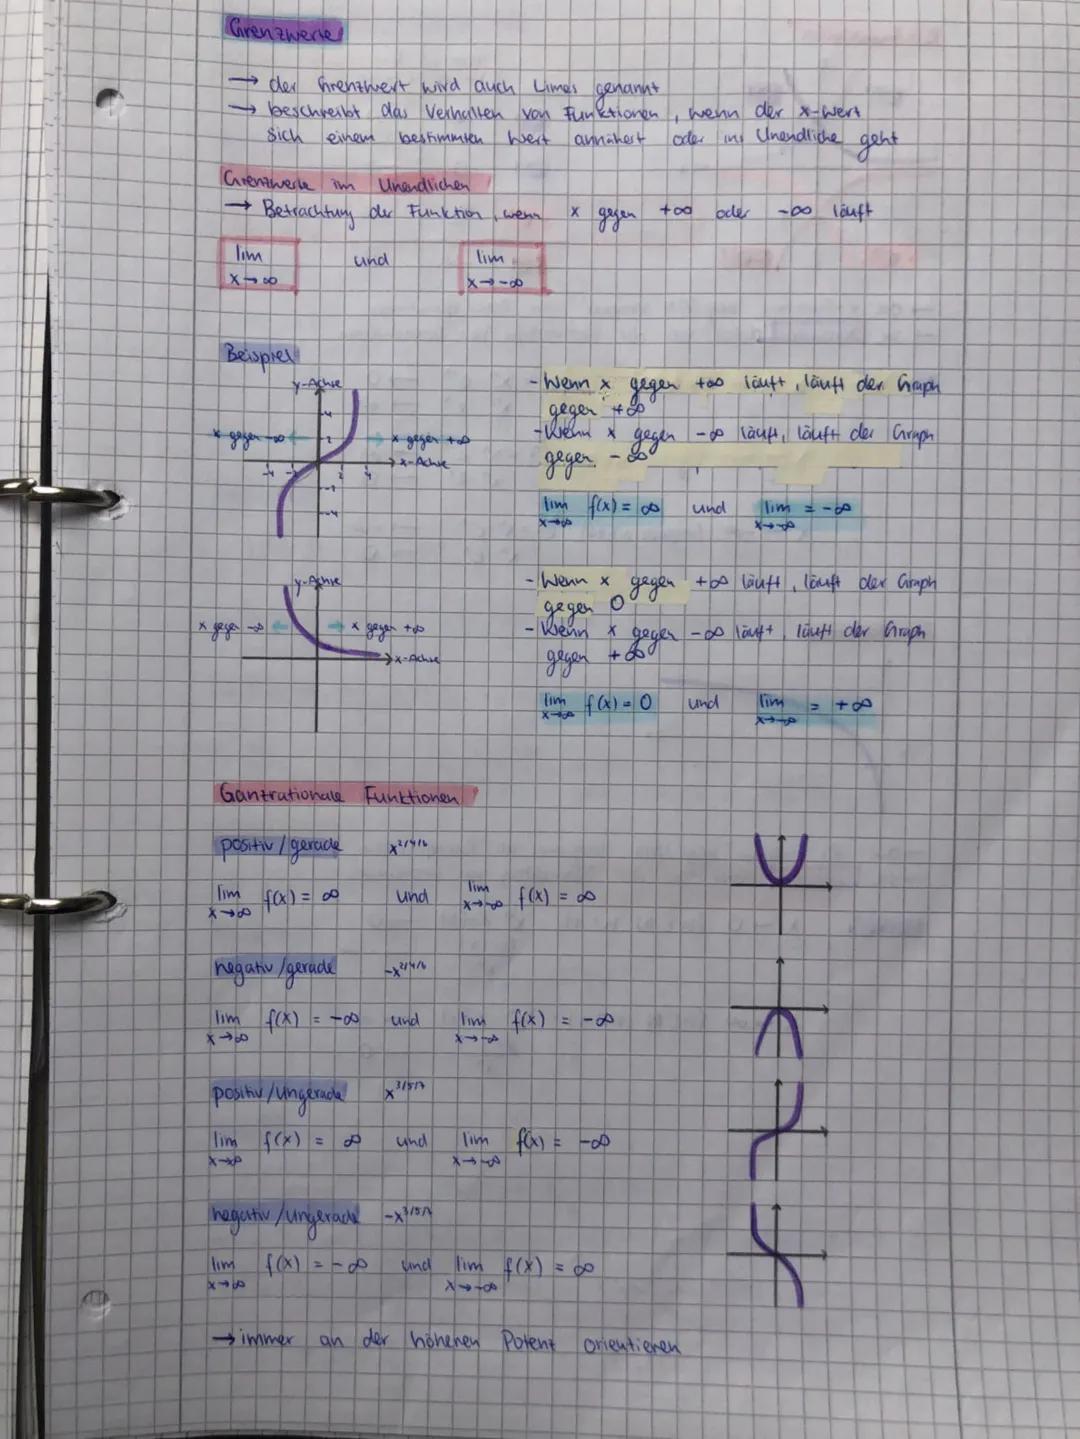 Grenzwerte
→ der Grenzwert wird auch Limes genannt
→ beschreibt das Verhalten von Funktionen, wenn der x-Wert
sich einem bestimmten Wert annähert oder ins Unendliche geht
Grenzwerte im Unendlichen
→ Betrachtung der Funktion, wenn x gegen +∞ oder -∞ läuft
lim und lim
x→∞ x→-∞
Beispiel
y-Achse
x gegen -∞ x gegen +∞
x-Achse
4
2
-4 -2 2 4
-2
-4
- Wenn x gegen +∞ läuft, läuft der Graph
gegen +∞
- Wenn x gegen -∞ läuft, läuft der Graph
gegen -∞
lim f(x) = ∞ und lim = -∞
x→∞ x→-∞
y-Achse
x gegen -∞ x gegen +∞
x-Achse
- Wenn x gegen +∞ läuft, läuft der Graph
gegen 0
- Wenn x gegen -∞ läuft, läuft der Graph
gegen +∞
lim f(x) = 0 und lim = +∞
x→∞ x→-∞
Ganzrationale Funktionen
positiv/gerade x^2/4/6
lim f(x) = ∞ und lim f(x) = ∞
x→∞ x→-∞
negativ/gerade -x^2/4/6
lim f(x) = -∞ und lim f(x) = -∞
x→∞ x→-∞
positiv/ungerade x^3/5/7
lim f(x) = ∞ und lim f(x) = -∞
x→∞ x→-∞
negativ/ungerade -x^3/5/7
lim f(x) = -∞ und lim f(x) = ∞
x→∞ x→-∞
→ immer an der höheren Potenz orientieren